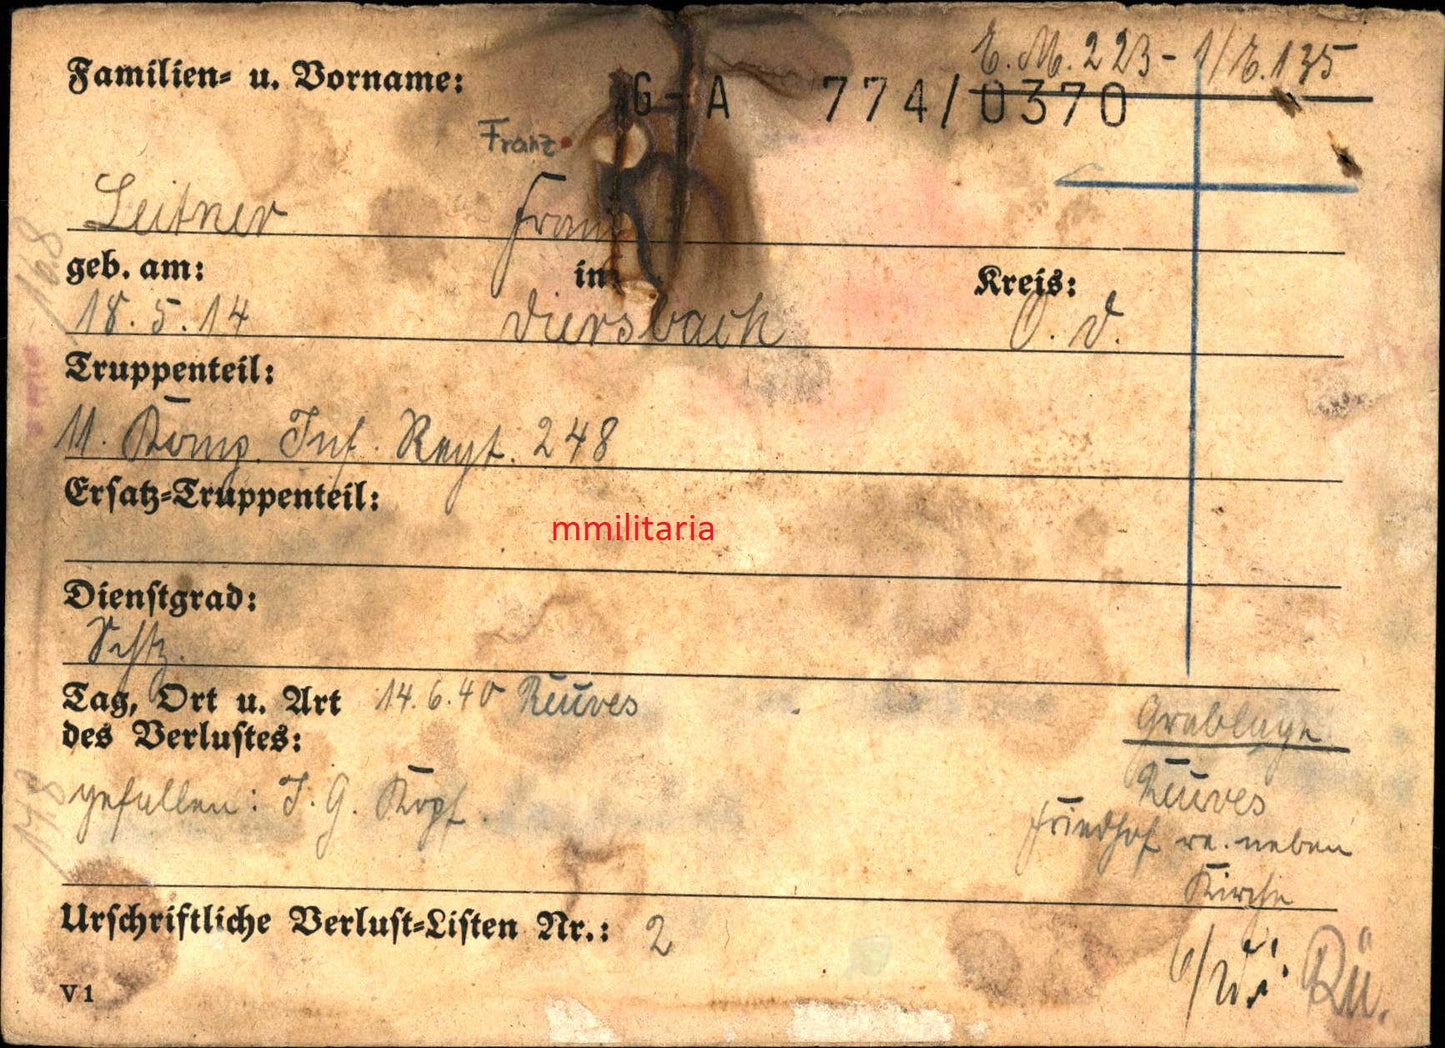 E. M. 223 - 1/E. 135
Familien- u. Vorname:
G-A 774/0370
Franz
Leitner Franz
geb. am: in Kreis:
18. 5. 14 Diersbach O. D.
Truppenteil:
11. Komp. Inf. Regt. 248
Ersatz-Truppenteil:
mmilitaria
Dienstgrad:
Schtz.
Tag, Ort u. Art 14.6.40 Reuves
des Verlustes:
Grablage
gefallen: I. G. Kopf.
Reuves
Friedhof re. neben
Kirche
Urschriftliche Verlust-Listen Nr.: 2
Rü.
V 1